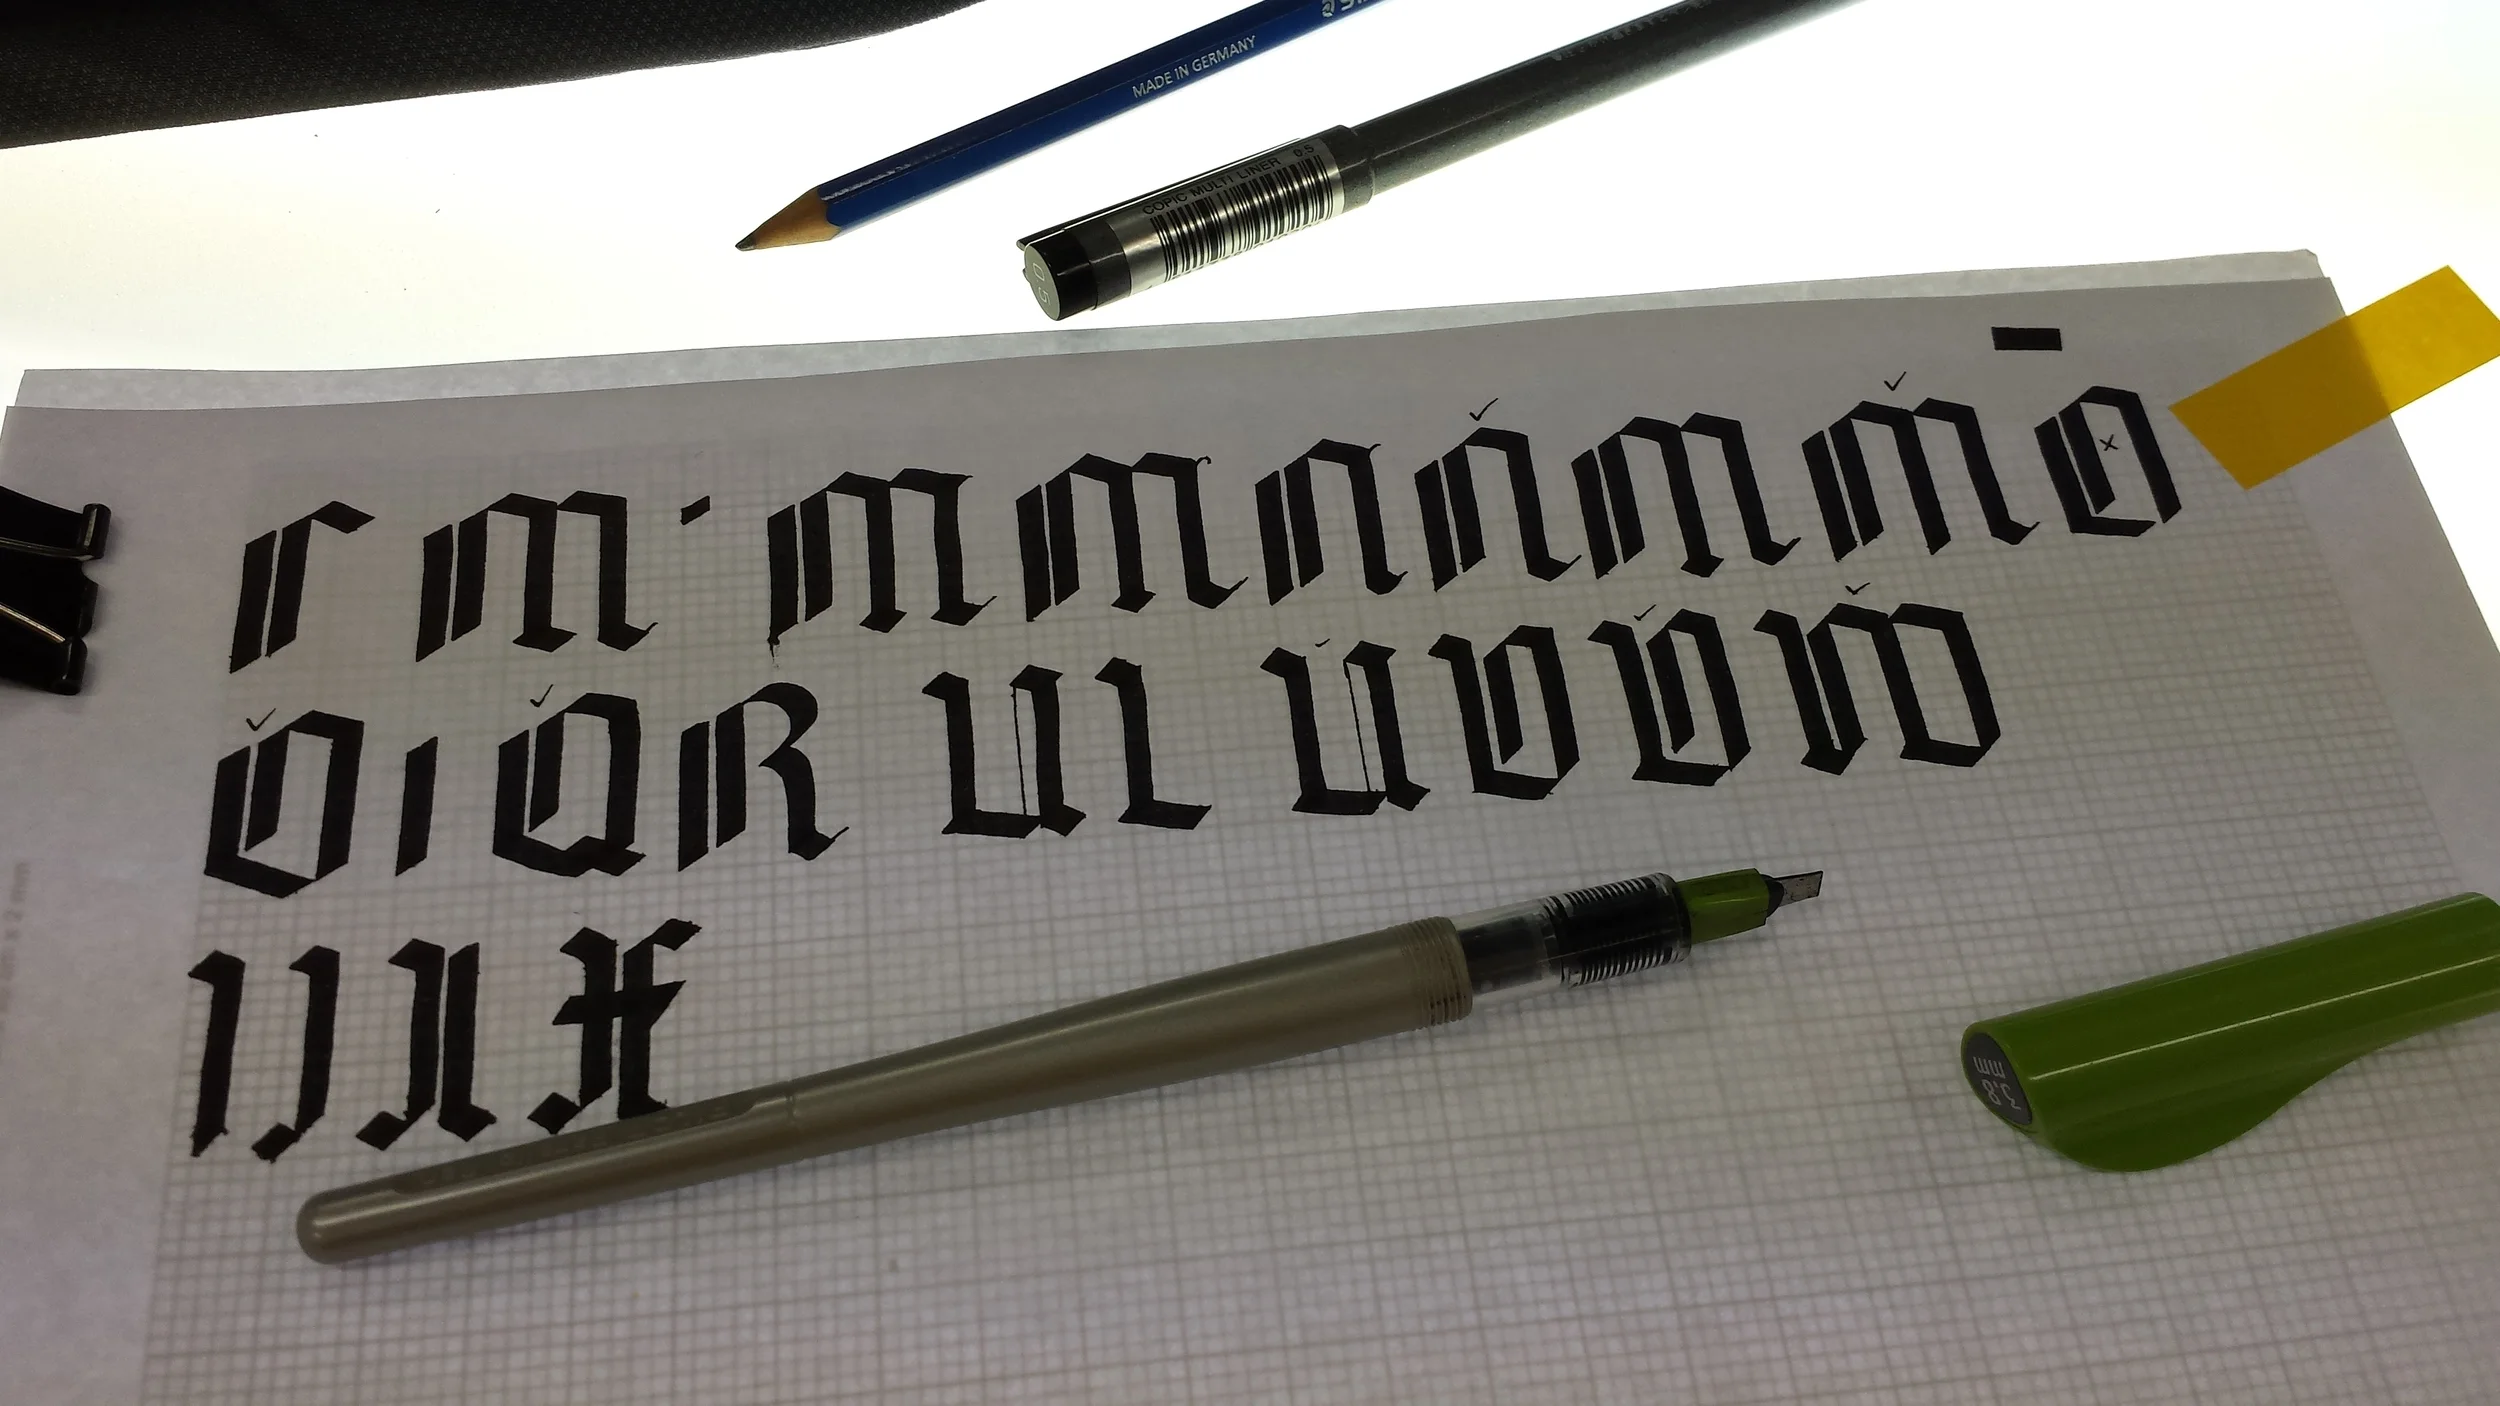 MADE IN GERMANY
COPIC MULTI LINER 0.5
0.5
M M M N N M M O
O I Q R U L U O O W
I J X X
3.8
mm